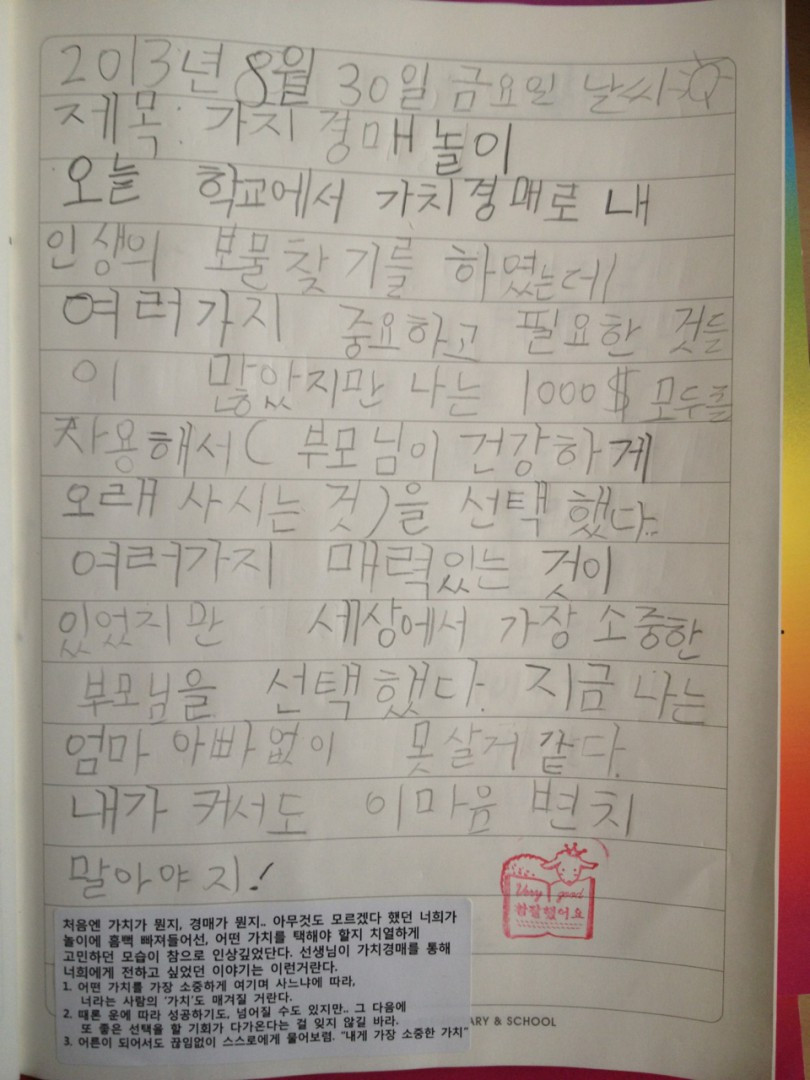 2013년 8월 30일 금요일 날씨:
제목: 가지 경매 놀이
오늘 학교에서 가치경매로 내
인생의 보물찾기를 하였는데
여러가지 중요하고 필요한 것들
이 많았지만 나는 1000$ 모두를
사용해서( 부모님이 건강하게
오래 사시는 것)을 선택 했다..
여러가지 매력있는 것이
있었지만 세상에서 가장 소중한
부모님을 선택했다. 지금 나는
엄마 아빠없이 못살거 같다.
내가 커서도 이마음 변치
말아야지!
Very good
참잘했어요
처음엔 가치가 뭔지, 경매가 뭔지.. 아무것도 모르겠다 했던 너희가
놀이에 흠뻑 빠져들어선, 어떤 가치를 택해야 할지 치열하게
고민하던 모습이 참으로 인상깊었단다. 선생님이 가치경매를 통해
너희에게 전하고 싶었던 이야기는 이런거란다.
1. 어떤 가치를 가장 소중하게 여기며 사느냐에 따라,
너라는 사람의 '가치'도 매겨질 거란다.
2. 때론 운에 따라 성공하기도, 넘어질 수도 있지만.. 그 다음에
또 좋은 선택을 할 기회가 다가온다는 걸 잊지 않길 바라.
3. 어른이 되어서도 끊임없이 스스로에게 물어보렴. "내게 가장 소중한 가치"
ARY & SCHOOL